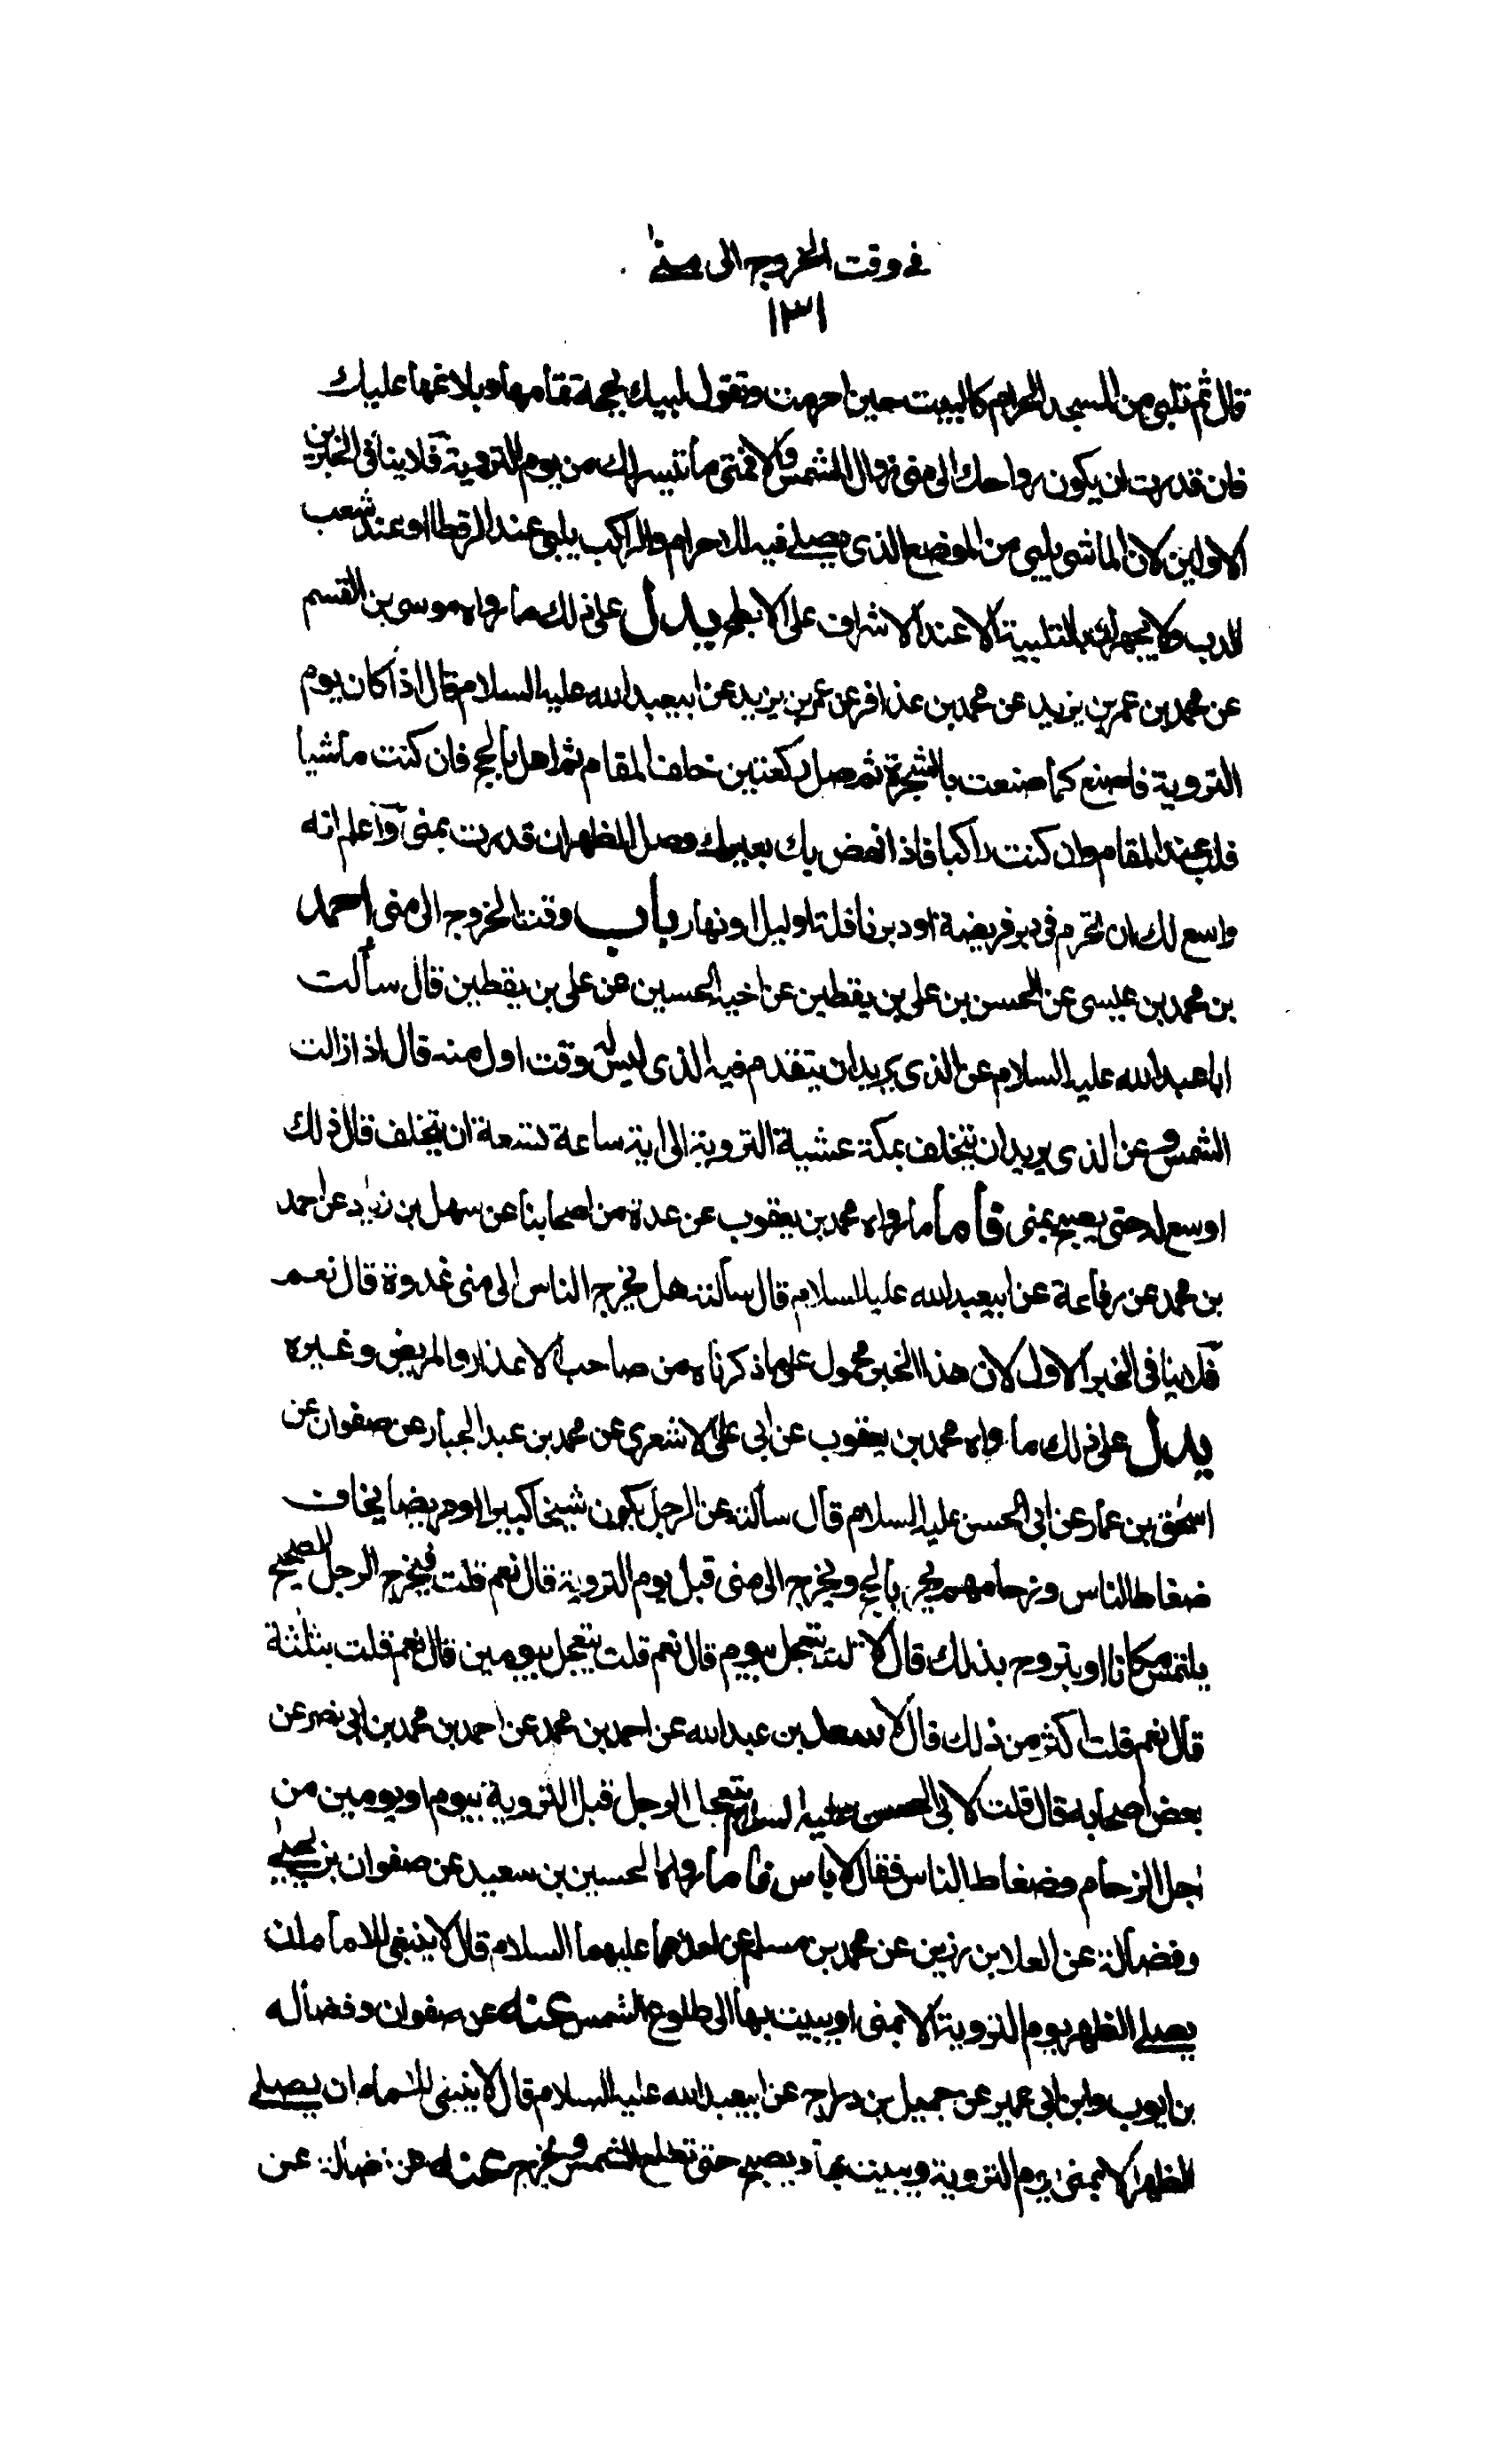 في وقت الخروج الى منى
١٣١
قال ثم تلبى من المسجد الحرام كما لبيت حين احرمت وتقول لبيك بحجة تمامها وبلاغها عليك
فان قدرت ان يكون رواحك الى منى زوال الشمس والا فمتى ما تيسر لك من يوم التروية فلا ينافى الخبرين
الاولين لان الماشى يلبى من الموضع الذى يصلى فيه للاحرام والراكب يلبى عند الرقطا او عند شعب
الدب ولا يجهران بالتلبية الا عند الاشراف على الابطح يدل على ذلك ما رواه موسى بن القسم
عن محمد بن عمر بن يزيد عن محمد بن عذافر عن عمر بن يزيد عن ابيعبدالله عليه السلام قال اذا كان يوم
التروية فاصنع كما صنعت بالشجرة ثم صل ركعتين خلف المقام ثم اهل بالحج فان كنت ماشيا
فلب عند المقام وان كنت راكبا فاذا نهض بك بعيرك وصل الظهر ان قدرت بمنى واعلم انه
واسع لك ان تحرم فى دبر فريضة او دبر نافلة او ليل او نهار باب وقت الخروج الى منى احمد
بن محمد بن عيسى عن الحسن بن على بن يقطين عن اخيه الحسين عن على بن يقطين قال سألت
اباعبدالله عليه السلام عن الذى يريد ان يتقدم فيه الذى ليس له وقت اول منه قال اذا زالت
الشمس وعن الذى يريد ان يتخلف بمكة عشية التروية الى اية ساعة تسعة ان يتخلف قال ذلك
اوسع له حتى يصبح بمنى فأما ما رواه محمد بن يعقوب عن عدة من اصحابنا عن سهل بن زياد عن احمد
بن محمد عن رفاعة عن ابيعبدالله عليه السلام قال سألته هل يخرج الناس الى منى غدوة قال نعم
فلا ينافى الخبر الاول لان هذا الخبر محمول على ما ذكرناه من صاحب الاعذار والمريض وغيره
يدل على ذلك ما رواه محمد بن يعقوب عن ابى على الاشعرى عن محمد بن عبد الجبار عن صفوان عن
اسحق بن عمار عن ابى الحسن عليه السلام قال سألته عن الرجل يكون شيخا كبيرا او مريضا يخاف
ضغاط الناس وزحامهم يحرم بالحج ويخرج الى منى قبل يوم التروية قال نعم قلت فيخرج الرجل الصحيح
يلتمس مكانا او يتروح بذلك قال لا قلت يتعجل بيوم قال نعم قلت يتعجل بيومين قال نعم قلت بثلثة
قال نعم قلت اكثر من ذلك قال لا سعد بن عبدالله عن احمد بن محمد عن احمد بن محمد بن ابى نصر عن
بعض اصحابه قال قلت لابى الحسن عليه السلام يتعجل الرجل قبل التروية بيوم او يومين من
اجل الزحام وضغاط الناس فقال لا باس فأما ما رواه الحسين بن سعيد عن صفوان بن يحيى
وفضالة عن العلا بن رزين عن محمد بن مسلم عن احدهما عليهما السلام قال لا ينبغى للامام ان
يصلى الظهر يوم التروية الا بمنى او يبيت بها الى طلوع الشمس عنه عن صفوان وفضاله
بن ايوب وابن ابى عمير عن جميل بن دراج عن ابيعبدالله عليه السلام قال لا ينبغى للامام ان يصلى
الظهر الا بمنى يوم التروية ويبيت بها ويصبح حتى تطلع الشمس ويخرج عنه عن فضالة عن